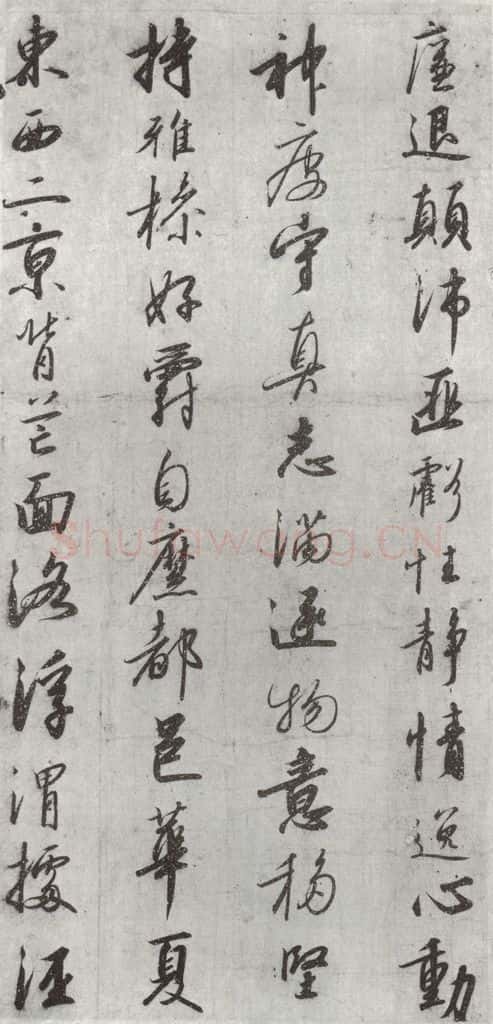 廉退顛沛匪虧性静情逸心動
神疲守真志滿逐物意移堅
持雅操好爵自縻都邑華夏
東西二京背芒面洛浮渭據涇
Shufawang.CN